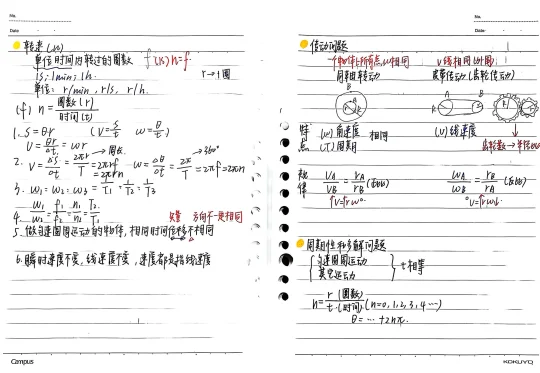 No.
Date
转速(n)
单位时间内转过的圈数 f(1s) n=f
1s; 1min; 1h. r→1圈
单位: r/min, r/s, r/h.
(f) n= 圈数(r) / 时间(t)
1. S=θr (V=s/t w=θ/t)
V=θr/t=wr →周长 →360°
2. V=Δs/Δt=2πr/T=2πrf=2πrn w=Δθ/Δt=2π/T=2πf=2πn
3. w₁=w₂=w₃=1/T₁=1/T₂=1/T₃
4. w₁/w₂=f₁/f₂=n₁/n₂=T₂/T₁ 矢量 方向不一定相同
5. 做匀速圆周运动的物体, 相同时间位移不相同
6. 瞬时速度不变, 线速度不变, 速度都是指线速度
Campus
No.
Date
传动问题
w相同 v线相同
同轴转动 皮带传动(齿轮传动)
B
A
A
B
R
r
特点 (w)角速度 相同 (V)线速度
(T)周期
规律 VA/VB=rA/rB (正比) wA/wB=rB/rA (反比)
V=rw V=rw
周期性和多解问题
匀速圆周运动
其它运动 t相等
n= r(圈数)/t(时间) (n=0,1,2,3,4…)
θ=…+2nπ.
KOKUYO